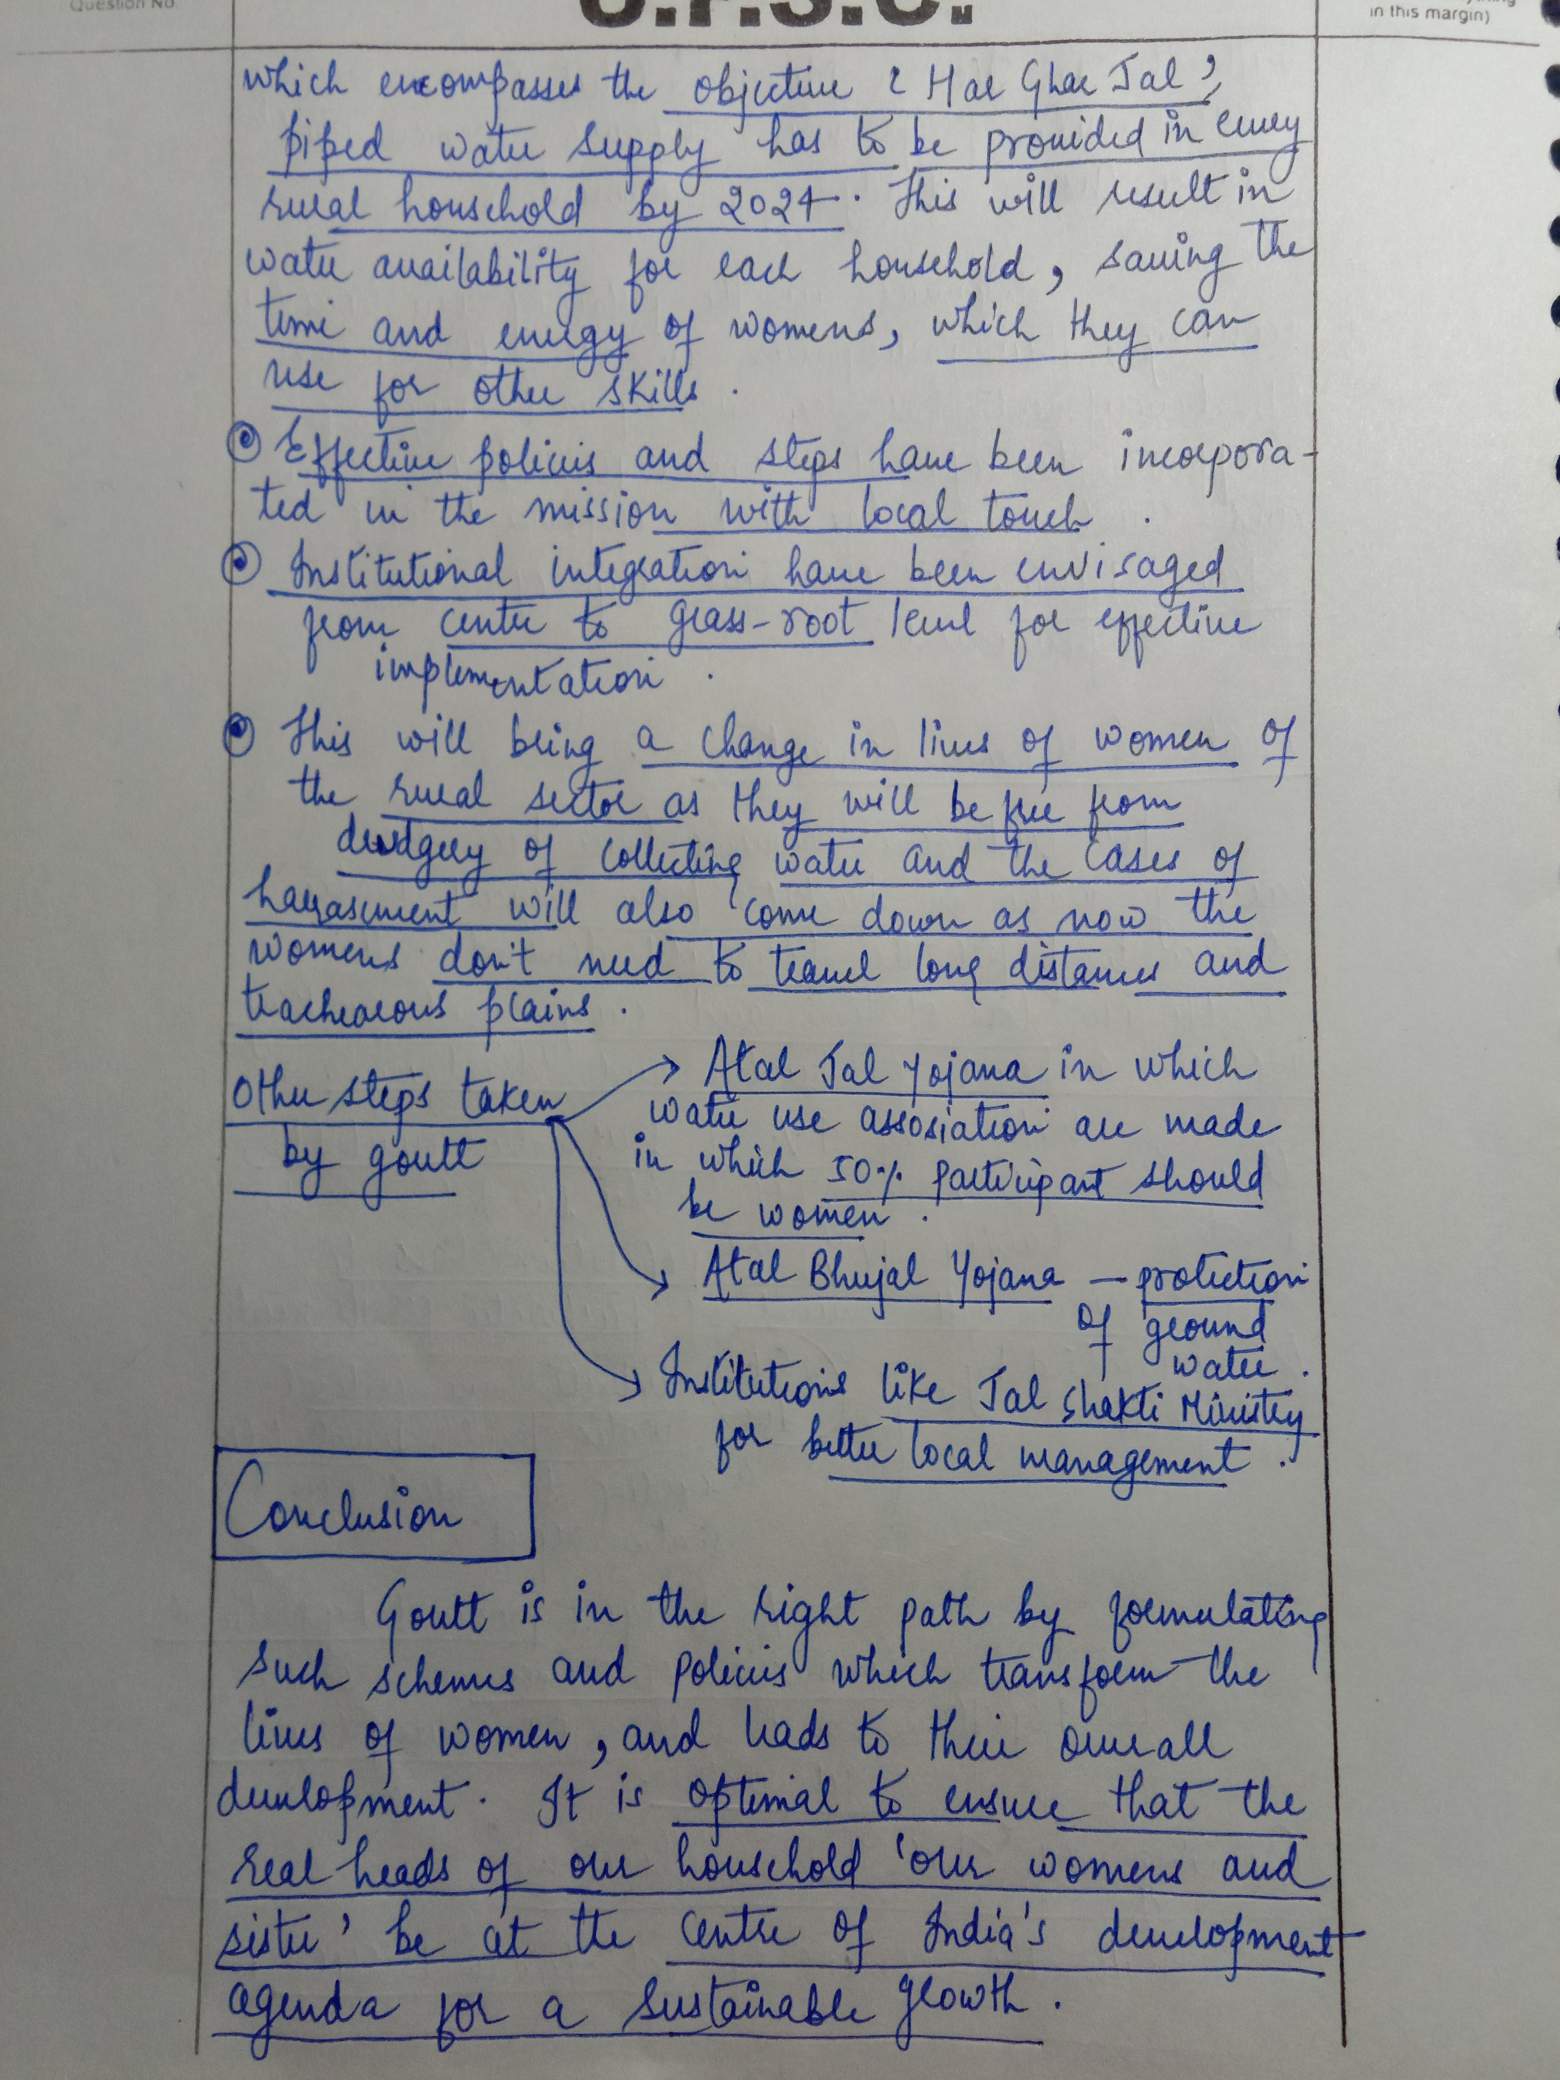 Question No.
U.P.S.C.
in this margin)
which encompasses the objective 'Har Ghar Jal',
piped water supply has to be provided in every
rural household by 2024. This will result in
water availability for each household, saving the
time and energy of womens, which they can
use for other skills.
Effective policies and steps have been incorpora-
ted in the mission with local touch.
Institutional integration have been envisaged
from centre to grass-root level for effective
implementation.
This will bring a change in lives of women of
the rural sector as they will be free from
drudgery of collecting water and the cases of
harrasement will also come down as now the
womens don't need to travel long distances and
tracherorous plains.
Other steps taken
by govtt
Atal Jal Yojana in which
water use assosiation are made
in which 50% participant should
be women.
Atal Bhujal Yojana - protection
of ground
water.
Institutions like Jal Shakti Ministry
for better local management.
Conclusion
Govtt is in the right path by formulating
such schemes and policies which transform the
lives of women, and leads to their overall
development. It is optimal to ensure that the
real heads of our household 'our womens and
sister' be at the centre of India's development
agenda for a sustainable growth.